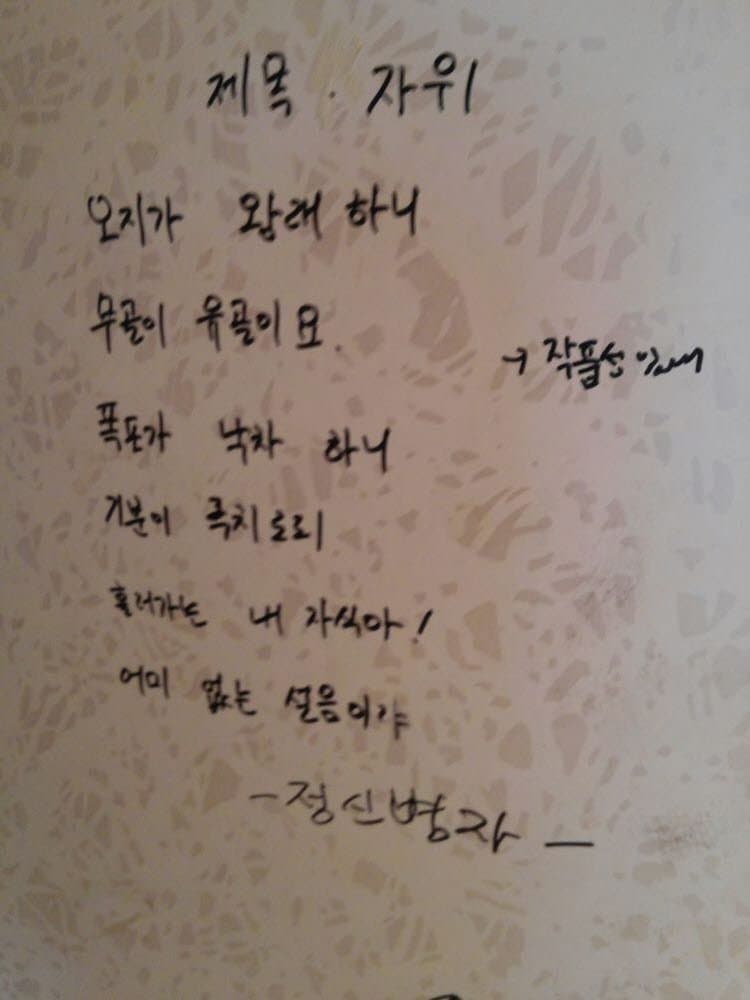 제목. 자위
오지가 왕래 하니
무골이 유골이요.
폭포가 낙차 하니
기분이 극치로리
흘러가는 내 자식아!
어미 없는 설음이랴
-정신병자-
→ 작품성 있네